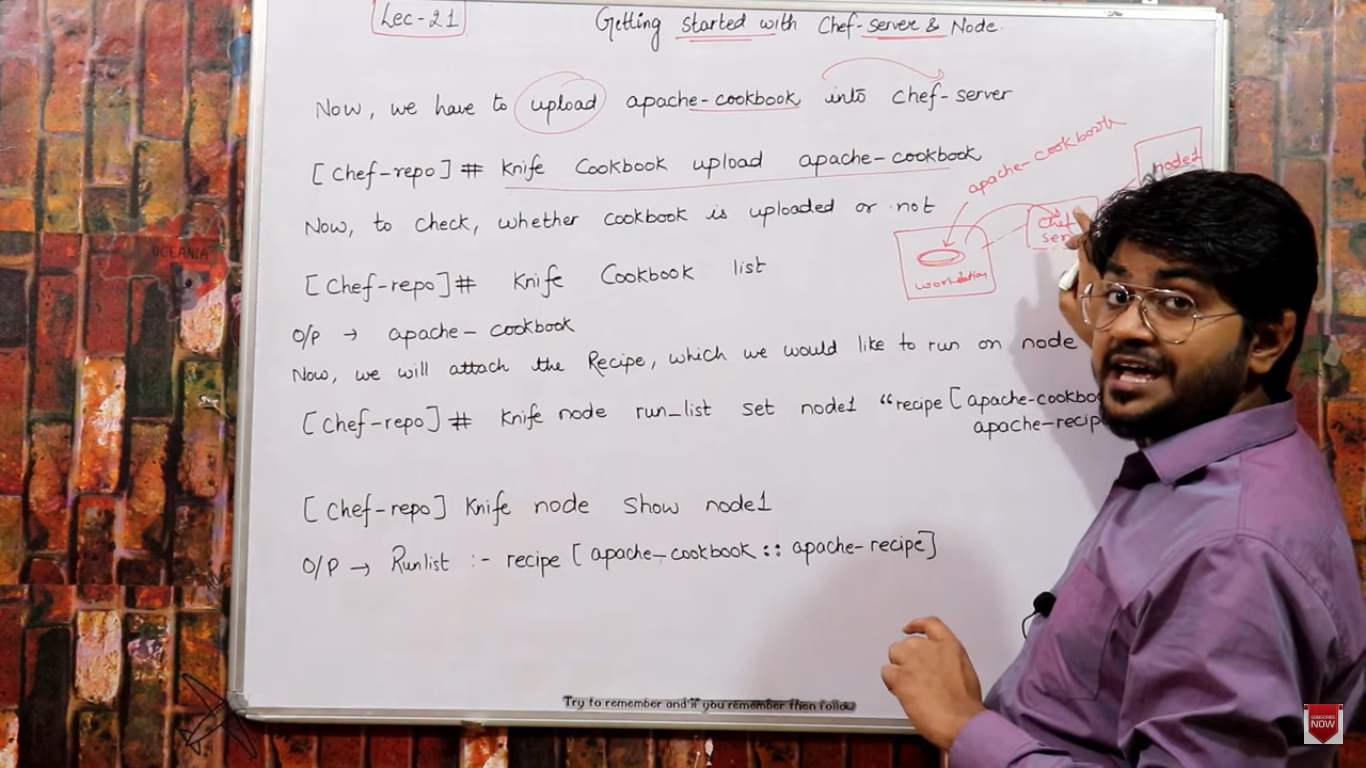 Lec-21
Getting started with Chef-server & Node.
Now, we have to upload apache-cookbook into chef-server
[chef-repo]# Knife Cookbook upload apache-cookbook
apache-cookbook
node1
Now, to check, whether cookbook is uploaded or not
chef
workstation
[chef-repo]# Knife Cookbook list
O/P → apache-cookbook
Now, we will attach the Recipe, which we would like to run on node
[chef-repo]# Knife node run_list set node1 "recipe [apache-cookbo
apache-recip
[chef-repo] Knife node show node1
O/P → Runlist :- recipe [apache-cookbook :: apache-recipe]
Try to remember and if you remember then follow
SUBSCRIBE
NOW
OCEANIA